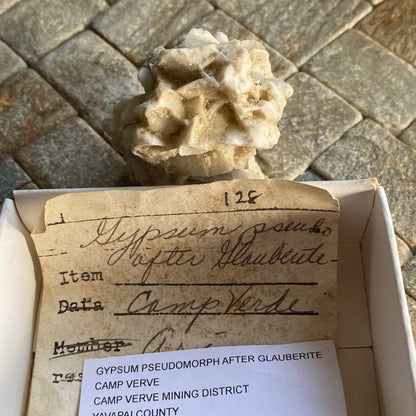 128
Gypsum pseudo
after Glauberite
Item
Data Camp Verde
Member
res
GYPSUM PSEUDOMORPH AFTER GLAUBERITE
CAMP VERVE
CAMP VERVE MINING DISTRICT
YAVAPAI COUNTY